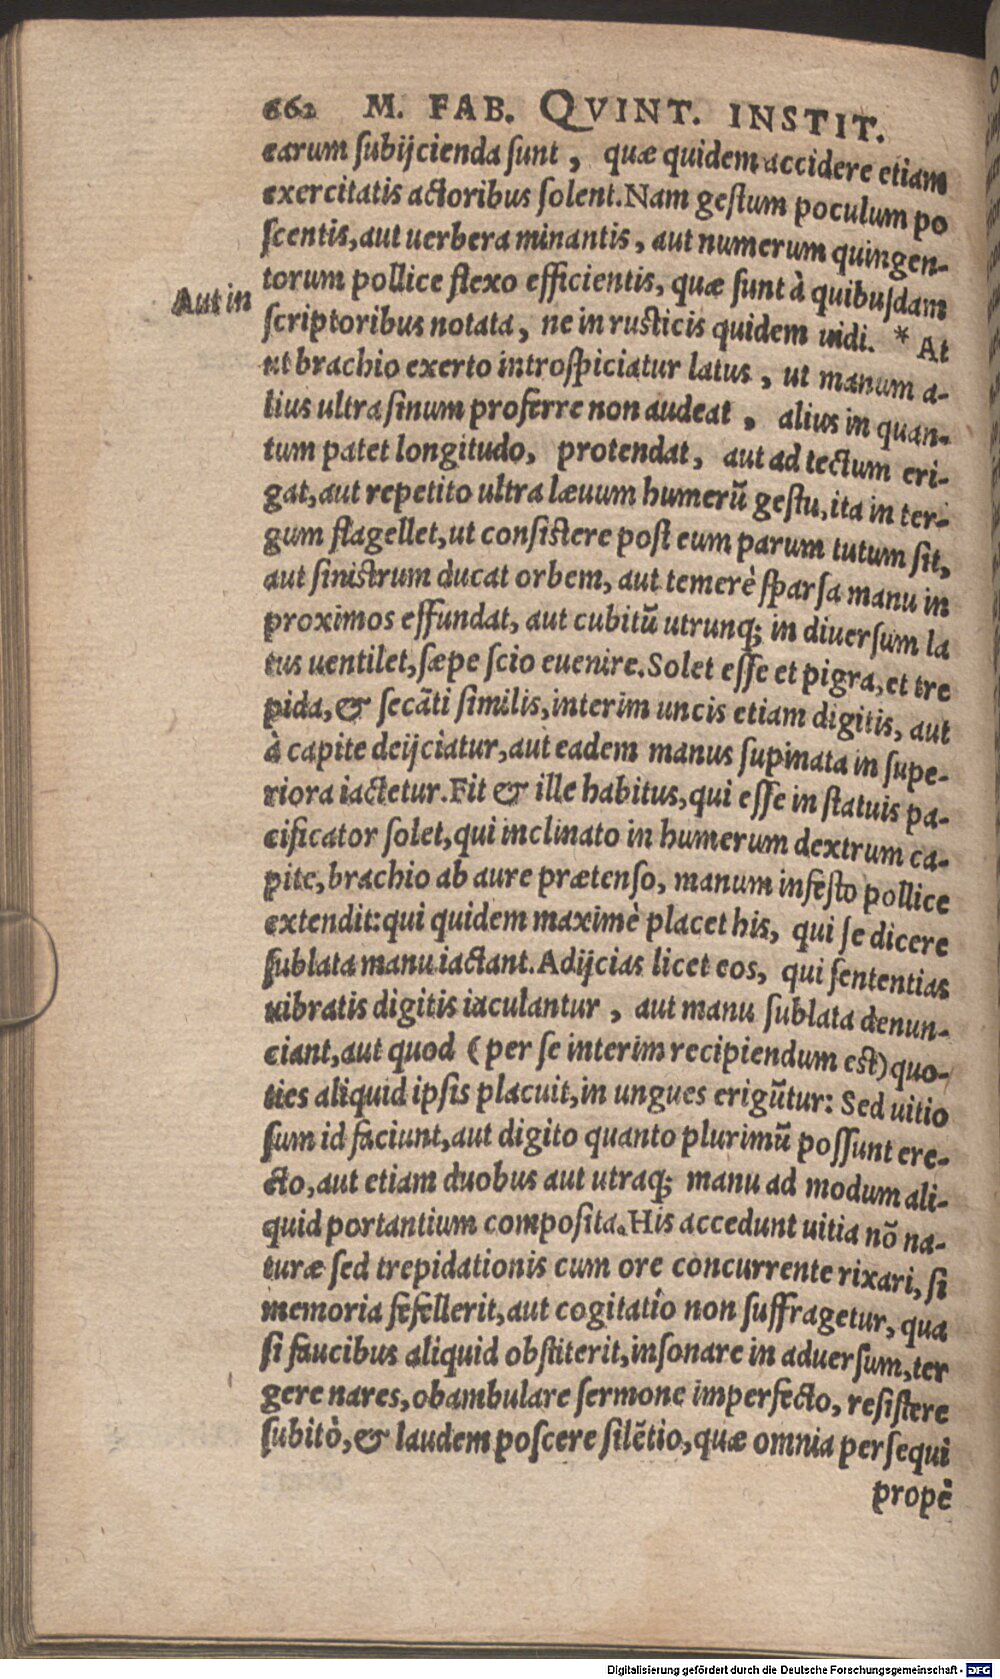 662 M. FAB. QVINT. INSTIT.
earum ſubijcienda ſunt, quæ quidem accidere etiam
exercitatis actoribus ſolent. Nam geſtum poculum po
ſcentis, aut uerbera minantis, aut numerum quingen-
torum pollice flexo efficientis, quæ ſunt à quibuſdam
Aut in
ſcriptoribus notata, ne in rusticis quidem uidi. * At
ut brachio exerto introſpiciatur latus, ut manum a-
lius ultra ſinum proferre non audeat, alius in quan-
tum patet longitudo, protendat, aut ad tectum eri-
gat, aut repetito ultra læuum humerū geſtu, ita in ter-
gum flagellet, ut conſistere poſt eum parum tutum ſit,
aut ſinistrum ducat orbem, aut temerè ſparſa manu in
proximos effundat, aut cubitū utrunq; in diuerſum la
tus uentilet, ſæpe ſcio euenire. Solet eſſe et pigra, et tre
pida, & ſecāti ſimilis, interim uncis etiam digitis, aut
à capite deijciatur, aut eadem manus ſupinata in ſupe-
riora iactetur. Fit & ille habitus, qui eſſe in ſtatuis pa-
cificator ſolet, qui inclinato in humerum dextrum ca-
pite, brachio ab aure prætenſo, manum infeſto pollice
extendit: qui quidem maximè placet his, qui ſe dicere
ſublata manu iactant. Adijcias licet eos, qui ſententias
uibratis digitis iaculantur, aut manu ſublata denun-
ciant, aut quod (per ſe interim recipiendum est) quo-
ties aliquid ipſis placuit, in ungues erigūtur: Sed uitio
ſum id faciunt, aut digito quanto plurimū poſſunt ere-
cto, aut etiam duobus aut utraq; manu ad modum ali-
quid portantium compoſita. His accedunt uitia nō na-
turæ ſed trepidationis cum ore concurrente rixari, ſi
memoria fefellerit, aut cogitatio non ſuffragetur, qua
ſi faucibus aliquid obstiterit, inſonare in aduerſum, ter
gere nares, obambulare ſermone imperfecto, reſistere
ſubitò, & laudem poſcere ſilētio, quæ omnia perſequi
propè
Digitalisierung gefördert durch die Deutsche Forschungsgemeinschaft - DFG